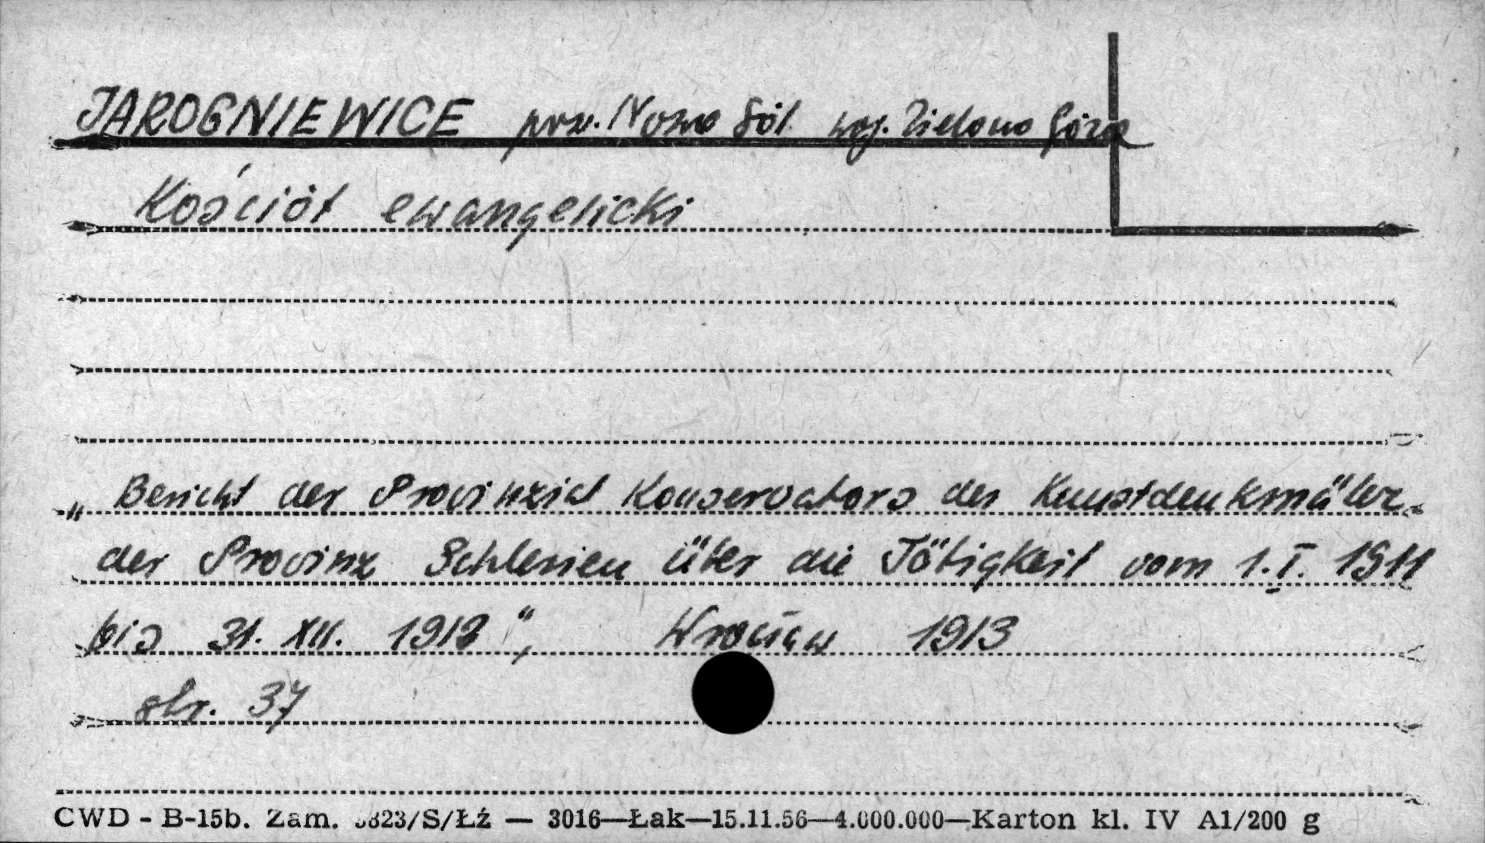 JAROGNIEWICE pow. Nowa Sól woj. Zielona Góra
Kościół ewangelicki
„Bericht der Provinzial Konservators der Kunstdenkmäler
der Provinz Schlesien über die Tätigkeit vom 1.I. 1911
bis 31. XII. 1912", Wrocław 1913
str. 37
CWD - B-15b. Zam. 823/S/Łź — 3016—Łak—15.11.56—4.000.000—Karton kl. IV A1/200 g